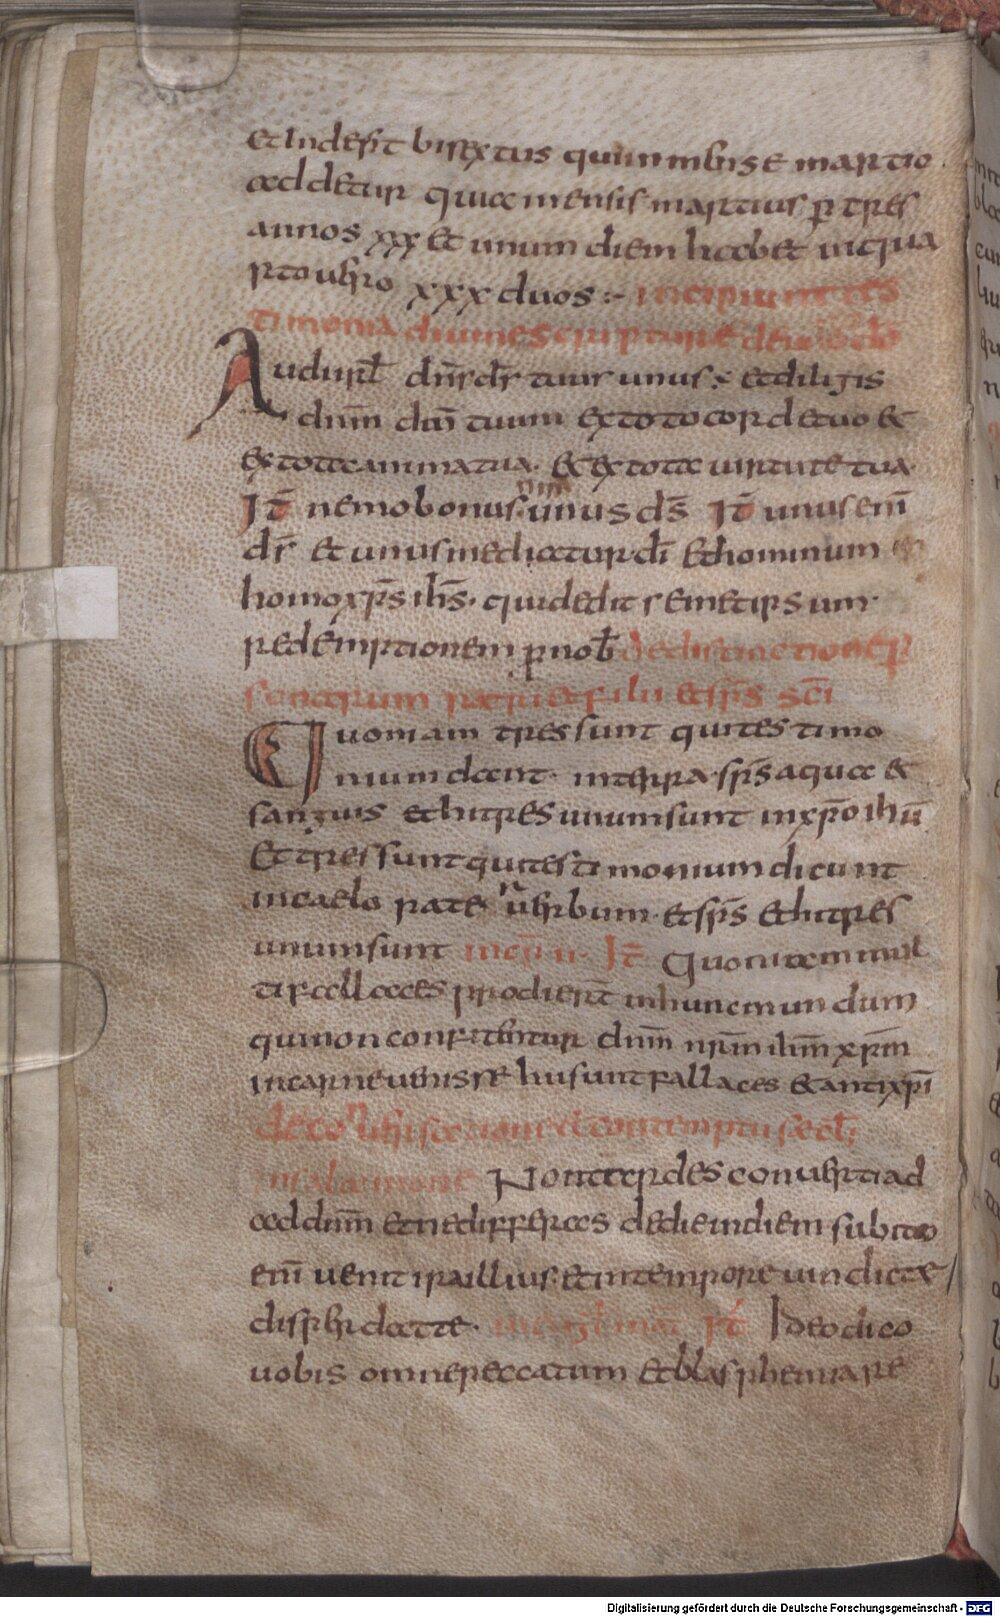 et Inde sit bisextus quum mense martio
addetur quia mensis martius ꝑ tres
annos xxx et unum diem habet in qua
rto uero xxx duos :- incipiunt tes
timonia diuine scripture de uno do
Audi isrl dns ds tuus unus : et diligis
dnm dm tuum ex toto corde tuo et
ex tota anima tua · et ex tota uirtute tua ·
It nemo bonus nisi unus ds It unus eni
ds et unus mediatur di et hominum
homo xps ihs · qui dedit semetipsum
redemptionem ꝑ nob de distinctione per
sonarum patri et filii et sps sci
Quoniam tres sunt qui testimo
nium dant · in terra · sps aqua et
sanguis et hi tres unum sunt in xpo ihu
Et tres sunt qui testimonium dicunt
in caelo pater uerbum · et sps et hi tres
unum sunt It Quoniam mul
ti fallaces prodiert in hunc mundum
qui non confitentur dnm nrm ihm xpm
in carne uenisse hi sunt fallaces et antixpi
de conuersatione et contemptu
Non tardes conuerti ad
ad dnm et ne differas de die in diem subito
eni uenit ira illius et in tempore uindicte
disperdat te · It Ideo dico
uobis omne peccatum et blasphemia re
Digitalisierung gefördert durch die Deutsche Forschungsgemeinschaft - DFG